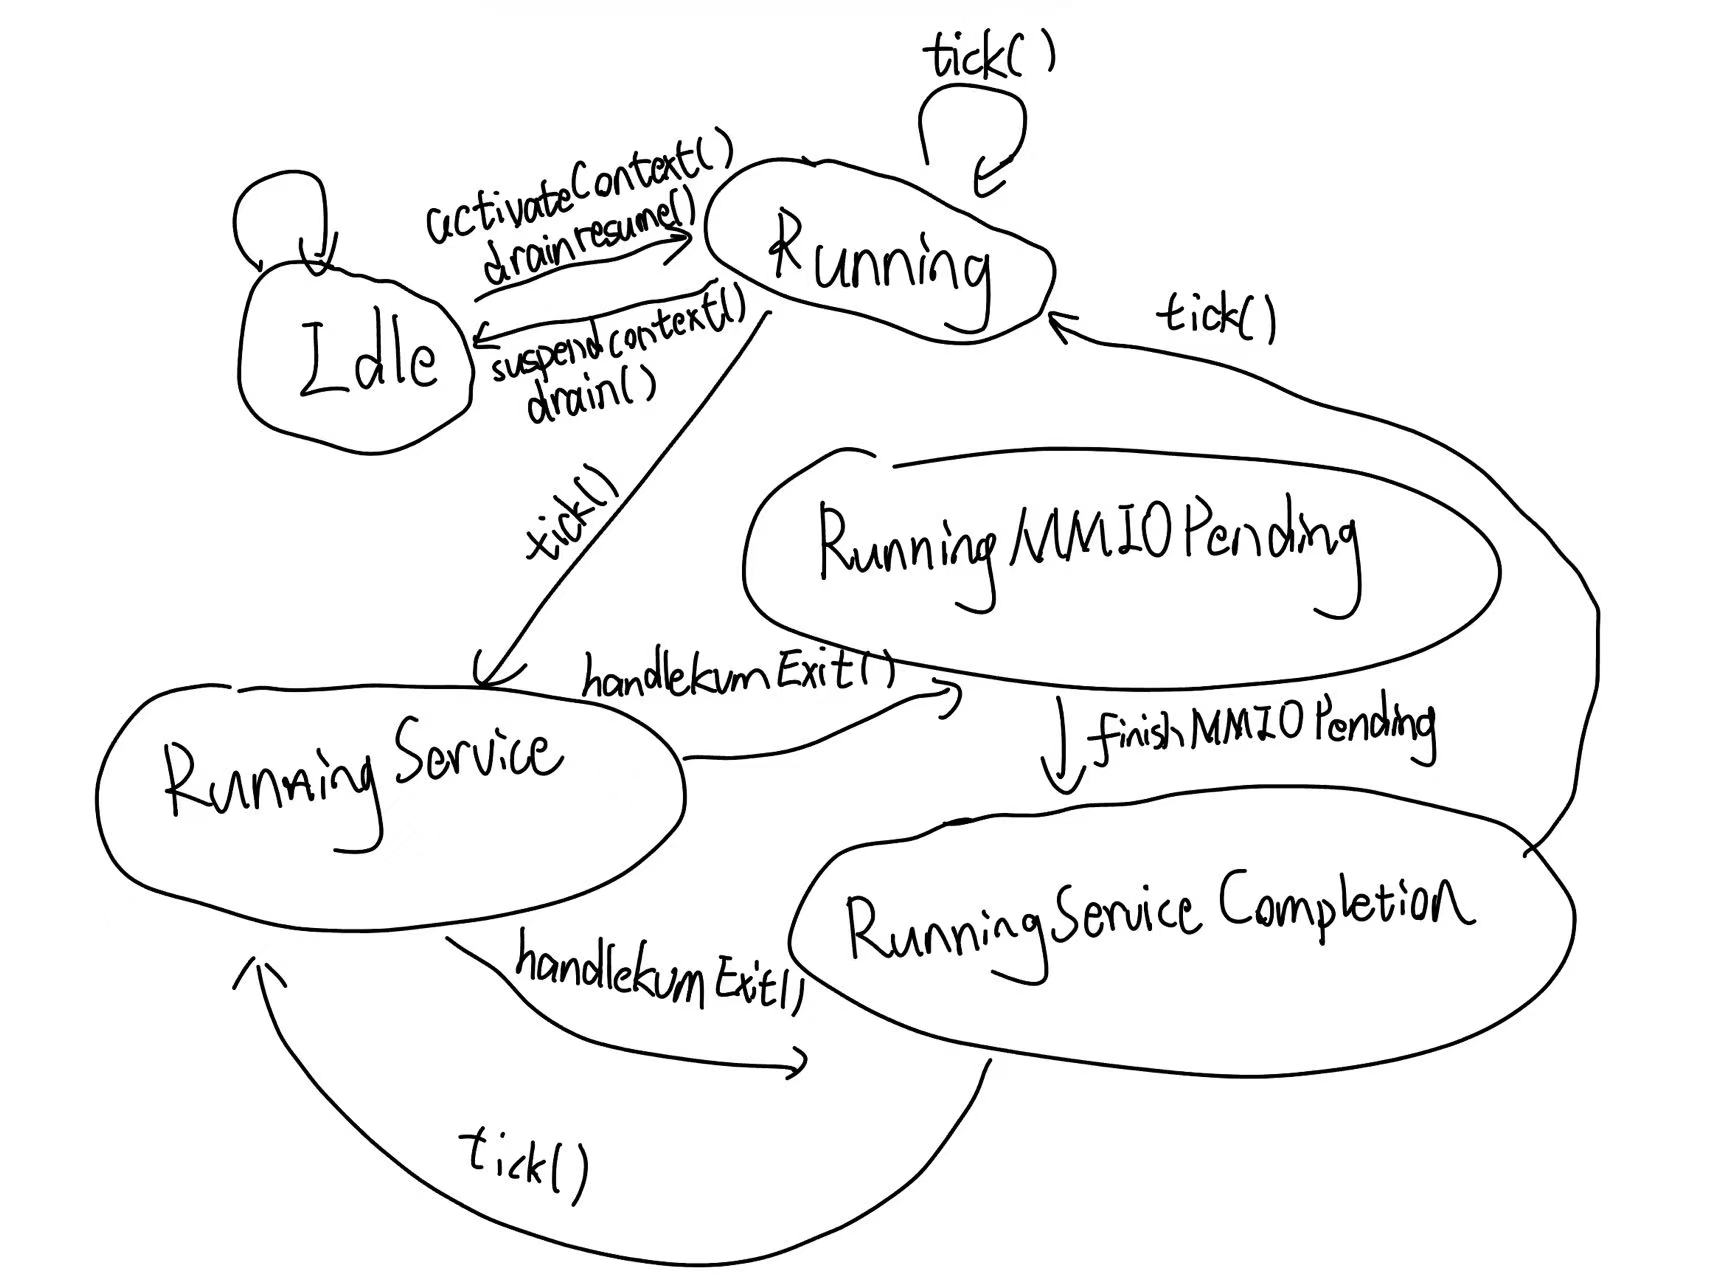 tick()
activateContext()
drainresume()
Running
Idle
suspendcontext()
drain()
tick()
tick()
RunningMMIOPending
handlekvmExit()
finishMMIOPending
RunningService
RunningService Completion
handlekvmExit()
tick()